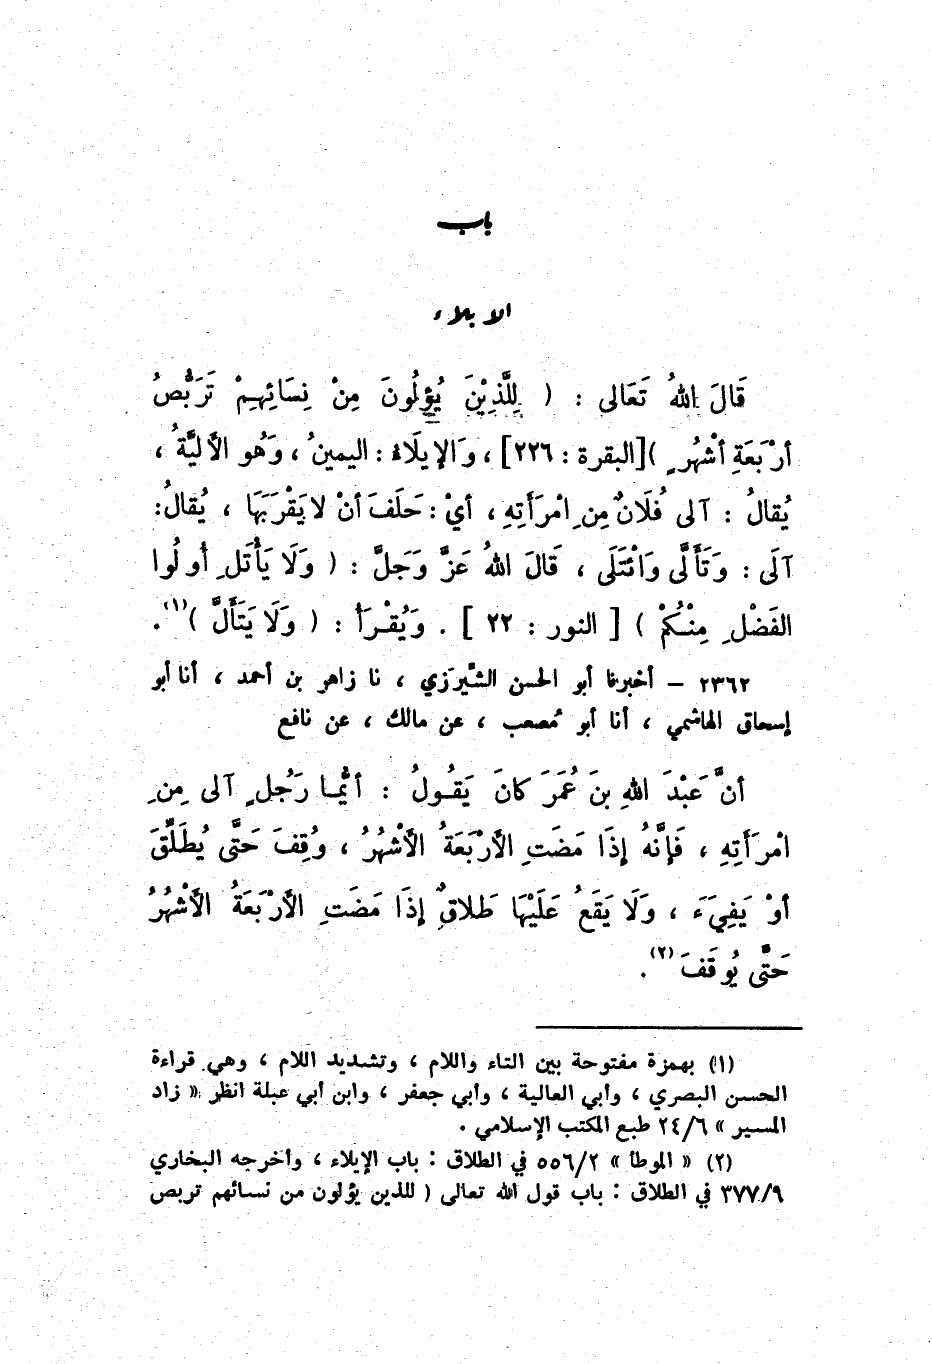 باب
الايلاء
قَالَ اللهُ تَعَالى : ( لِلَّذِيْنَ يُؤلُونَ مِنْ نِسَائِهِمْ تَرَبُّصُ
أرْبَعَةِ أشْهُرٍ )[البقرة : ٢٢٦] ، وَالإيلَاءُ : اليمينُ ، وَهُو الأليَّةُ ،
يُقالُ : آلى فُلَانٌ مِن امْرَأتِهِ ، أيْ : حَلَفَ أنْ لايَقْرَبَهَا ، يُقالُ:
آلَى : وَتَأَلَّى وَائْتَلَى ، قَالَ اللهُ عَزَّ وَجَلَّ : ( وَلَا يَأْتَلِ أُولُوا
الفَضْلِ مِنْكُمْ ) [ النور : ٢٢ ] . وَيُقْرَأ : ( وَلَا يَتَألَّ )(١) .
٢٣٦٢ – أخبرنا أبو الحسن الشِّيرَزي ، نا زاهر بن أحمد ، أنا أبو
إسحاق الهاشمي ، أنا أبو مُصعب ، عن مالك ، عن نافع
أنَّ عَبْدَ اللهِ بنَ عُمَرَ كانَ يَقُولُ : أيُّما رَجُلٍ آلى مِن
امْرَأتِهِ ، فَإنَّهُ إذَا مَضَتِ الأرْبَعَةُ الأشْهُرُ ، وُقِفَ حَتَّى يُطَلِّقَ
أوْ يَفِيءَ ، وَلَا يَقَعُ عَلَيْهَا طَلاقٌ إذَا مَضَتِ الأرْبَعَةُ الأشْهُرُ
حَتَّى يُوقَفَ (٢) .
(١) بهمزة مفتوحة بين التاء واللام ، وتشديد اللام ، وهي قراءة
الحسن البصري ، وأبي العالية ، وأبي جعفر ، وابن أبي عبلة انظر « زاد
المسير » ٢٤/٦ طبع المكتب الإسلامي .
(٢) « الموطأ » ٥٥٦/٢ في الطلاق : باب الإيلاء ، وأخرجه البخاري
٣٧٧/٩ في الطلاق : باب قول الله تعالى ( للذين يؤلون من نسائهم تربص